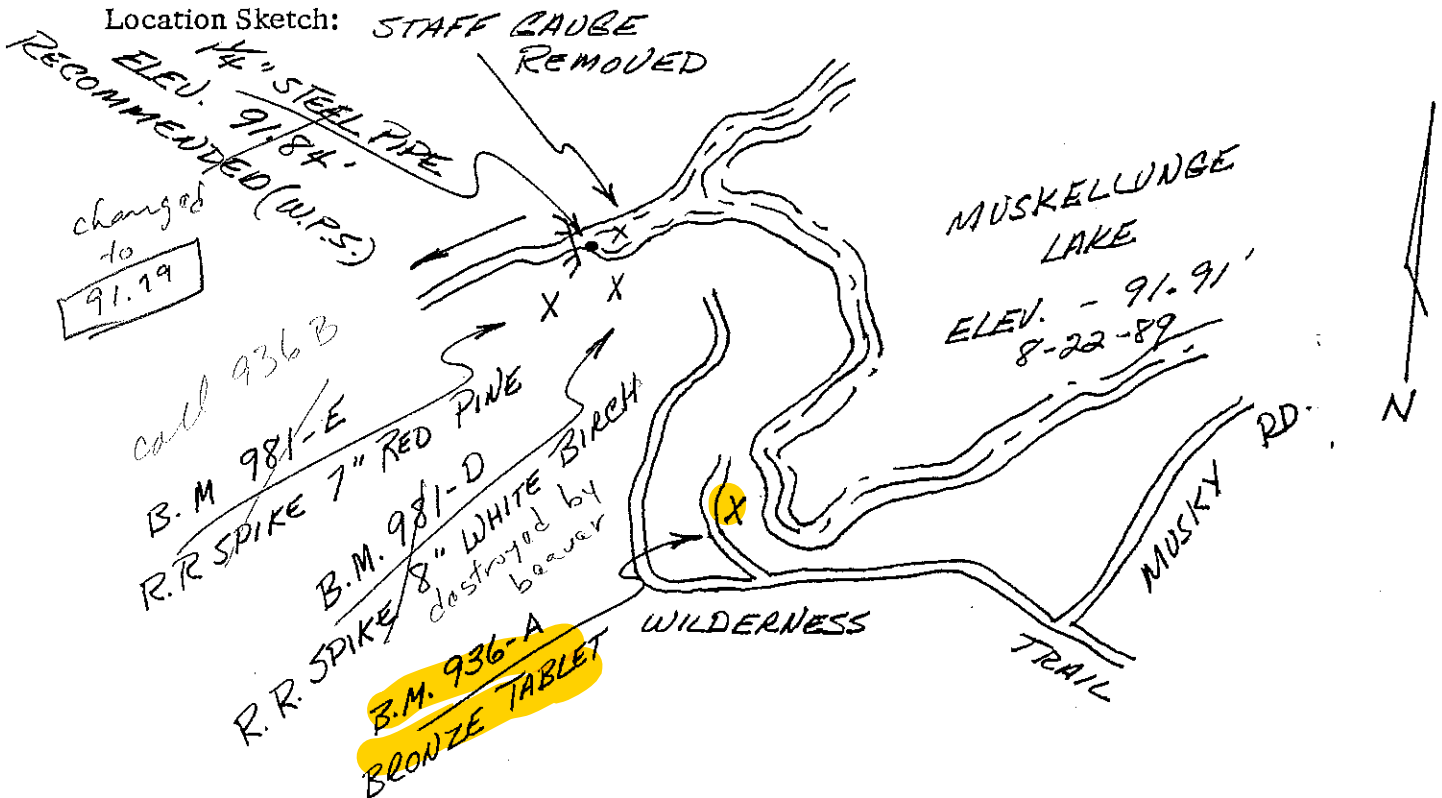 Location Sketch:
STAFF GAUGE
REMOVED
1/4" STEEL PIPE
ELEV. 91.84'
RECOMMENDED (W.P.S.)
changed
to
91.79
call 936 B
B.M 981-E
R.R SPIKE 7" RED PINE
B.M. 981-D
R.R. SPIKE 8" WHITE BIRCH
destroyed by
beaver
B.M. 936-A
BRONZE TABLET
MUSKELLUNGE
LAKE
ELEV. - 91.91'
8-22-89
N
MUSKY RD.
WILDERNESS
TRAIL
X
X
X
X